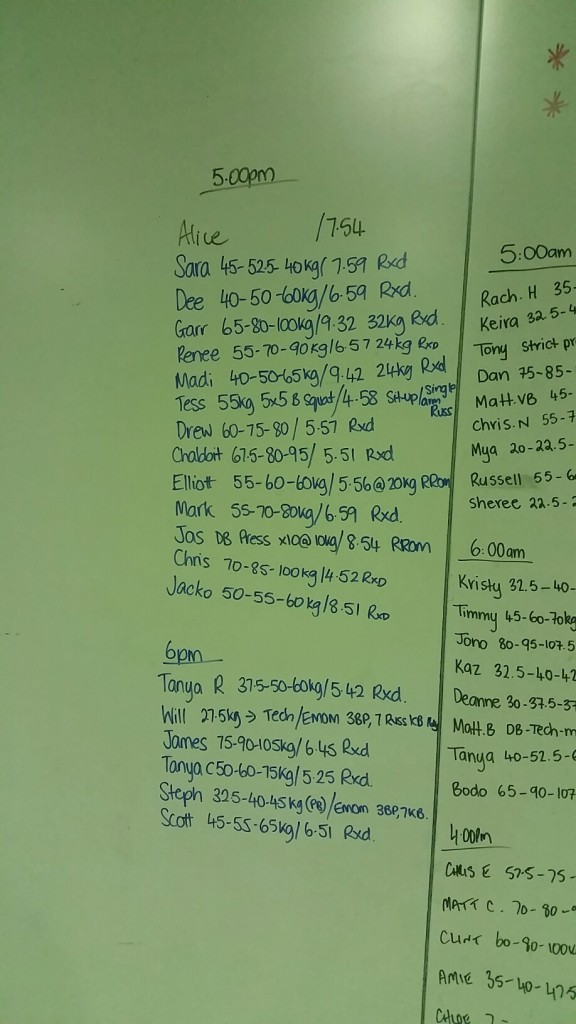 5.00pm
Alice /7.54
Sara 45-52.5-40kg/ 7.59 Rxd
Dee 40-50-60kg/6.59 Rxd.
Garr 65-80-100kg/9.32 32kg Rxd.
Renee 55-70-90kg/6.57 24kg Rxd
Madi 40-50-65kg/9.42 24kg Rxd
Tess 55kg 5x5 B Squat/4.58 Sit-up/single arm Russ
Drew 60-75-80/ 5.57 Rxd
67.5-80-95/ 5.51 Rxd
Elliott 55-60-60kg/5.56@20kg RRom
Mark 55-70-80kg/6.59 Rxd.
Jas DB Press x10@10kg/8.54 RRom
Chris 70-85-100kg/4.52 Rxd
Jacko 50-55-60kg/8.51 Rxd
6pm
Tanya R 37.5-50-60kg/5.42 Rxd.
Will 27.5kg → Tech/EMOM 3BP, 7 Russ KB
James 75-90-105kg/6.45 Rxd
Tanya C 50-60-75kg/5.25 Rxd.
Steph 32.5-40-45kg (PB)/Emom 3BP, 7KB.
Scott 45-55-65kg/6.51 Rxd.
5:00am
Rach. H 35-
Keira 32.5-4
Tony Strict pr
Dan 75-85-
Matt.VB 45-
Chris.N 55-7
Mya 20-22.5-
Russell 55-6
Sheree 22.5-2
6:00am
Kristy 32.5-40-
Timmy 45-60-70kg
Jono 80-95-107.5
Kaz 32.5-40-42
Deanne 30-37.5-37
Matt.B DB-Tech-m
Tanya 40-52.5-6
Bodo 65-90-107
4:00pm
CHRIS E 57.5-75-
MATT C. 70-80-
CLINT 60-80-100k
AMIE 35-40-47.5
CHLOE